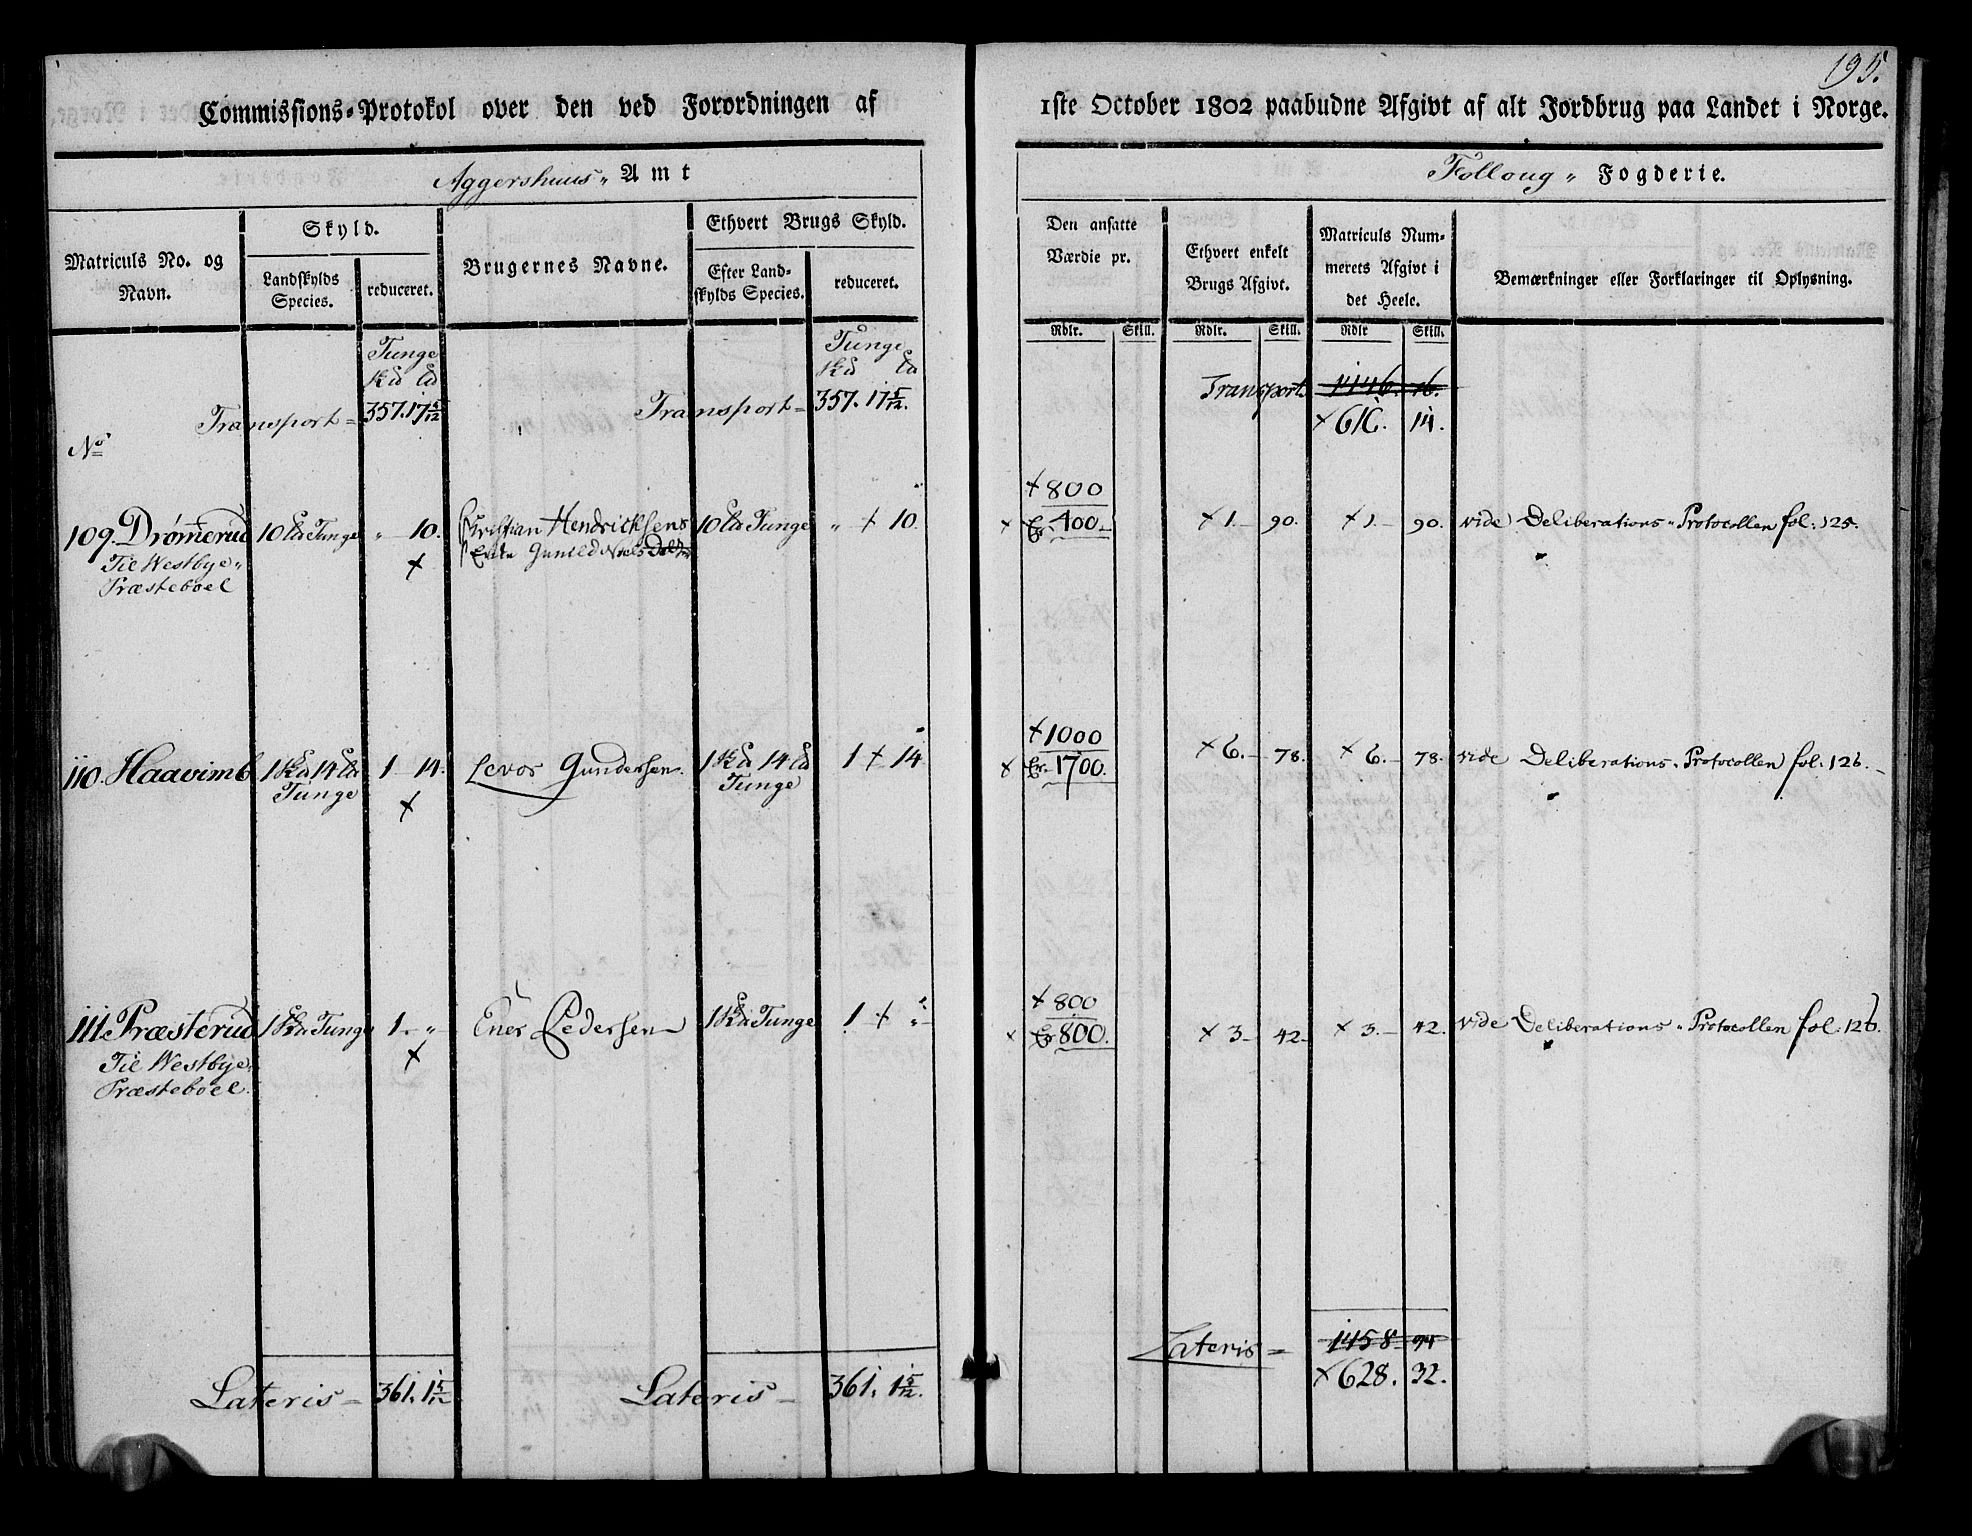 195.
Commissions-Protokol over den ved Forordningen af 1ste October 1802 paabudne Afgivt af alt Jordbrug paa Landet i Norge.
Aggershuus„ Amt
Folloug „ Fogderie.
Matriculs No. og Navn.
Skyld.
Landskylds Species.
reduceret.
Brugernes Navne.
Ethvert Brugs Skyld.
Efter Landskylds Species.
reduceret.
Den ansatte Værdie pr.
Ethvert enkelt Brugs Afgivt.
Matriculs Nummerets Afgivt i det Heele.
Bemærkninger eller Forklaringer til Oplysning.
Rdlr. Skill. Rdlr. Skill. Rdlr Skill.
Tunge
Tunge
Transport = 357. 17 5/12
Transport = 357. 17 5/12.
Transport 1146. 76.
× 616. 14.
No
× 800
109. Drømerud 10 Tunge „ 10. Kristian Hendrichsens 10 Tunge „ × 10. × 400 × 1. 90. × 1. 90. vide Deliberations„ Protocollen fol: 125.
Til Westbye„ × Enke Gunild Niels
Præsteboel
× 1000
110. Haavimb 1 14 1 14. Levor Gundersen. 1 14 1 × 14 × 1700. × 6. 78. × 6. 78. vide Deliberations„ Protocollen fol: 126.
Tunge × Tunge
× 800
111. Præsterud 1 Tunge 1. „ Ener Pedersen 1 Tunge 1 × „ × 800. × 3 42 × 3. 42. vide Deliberations„ Protocollen fol: 126.
Til Westbye„ ×
Præsteboel.
Lateris = 1458 94
× 628. 32.
Lateris = 361. 1 5/12
Lateris = 361. 1 5/12.